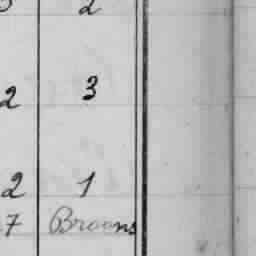 2
2 3
2 1
7 Broons